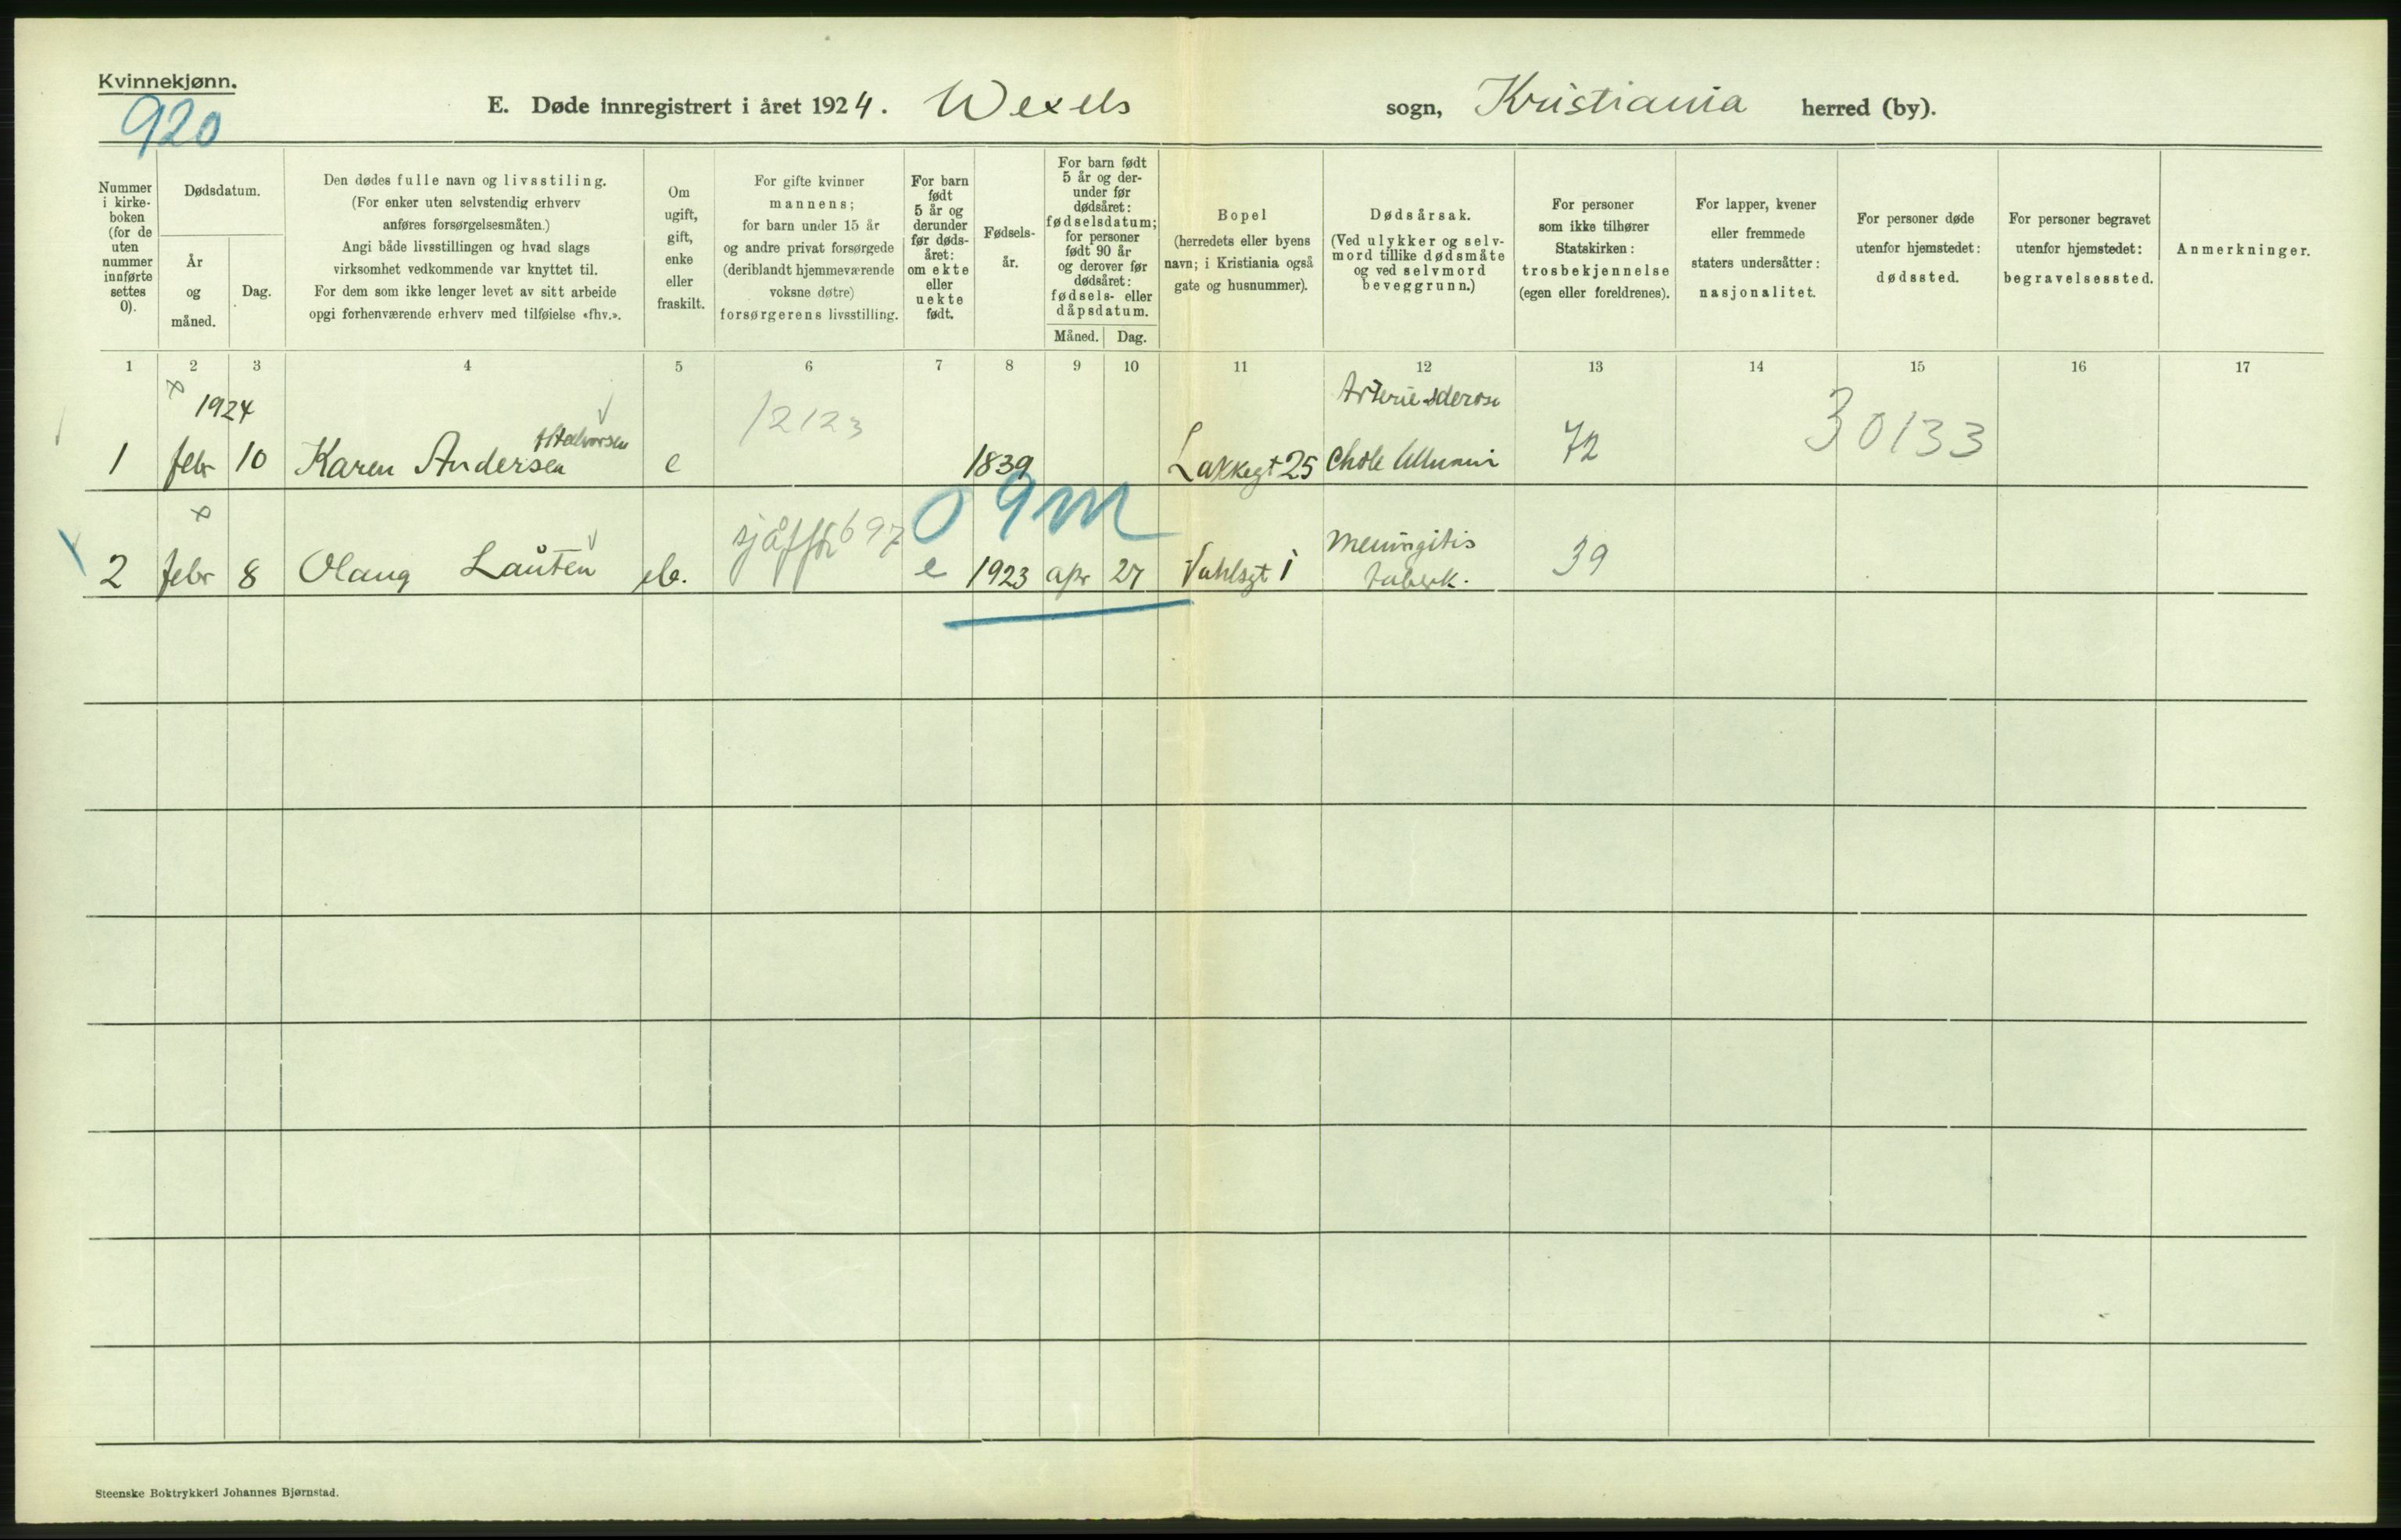 Kvinnekjønn.
920
E. Døde innregistrert i året 1924. Wexels sogn, Kristiania herred (by).
Nummer i kirke- boken (for de uten nummer innførte settes 0).
Dødsdatum.
År og måned.
Dag.
Den dødes fulle navn og livsstiling.
(For enker uten selvstendig erhverv
anføres forsørgelsesmåten.)
Angi både livsstillingen og hvad slags
virksomhet vedkommende var knyttet til.
For dem som ikke lenger levet av sitt arbeide
opgi forhenværende erhverv med tilføielse «fhv.».
Om
ugift,
gift,
enke
eller
fraskilt.
For gifte kvinner
mannens;
for barn under 15 år
og andre privat forsørgede
(deriblandt hjemmeværende
voksne døtre)
forsørgerens livsstilling.
For barn
født
5 år og
derunder
før døds-
året:
om ekte
eller
uekte
født.
Fødsels-
år.
For barn født
5 år og der-
under før
dødsåret:
fødselsdatum;
for personer
født 90 år
og derover før
dødsåret:
fødsels- eller
dåpsdatum.
Måned. Dag.
Bopel
(herredets eller byens
navn; i Kristiania også
gate og husnummer).
Dødsårsak.
(Ved ulykker og selv-
mord tillike dødsmåte
og ved selvmord
beveggrunn.)
For personer
som ikke tilhører
Statskirken:
trosbekjennelse
(egen eller foreldrenes).
For lapper, kvener
eller fremmede
staters undersåtter:
nasjonalitet.
For personer døde
utenfor hjemstedet:
dødssted.
For personer begravet
utenfor hjemstedet:
begravelsessted.
Anmerkninger.
1 2 3 4 5 6 7 8 9 10 11 12 13 14 15 16 17
x
1924 Arterie
12123 30133
1 febr 10 Karen Andersen e 1839 Lakkegt 25 Chole 72
x
09m
sjåffør 697 Meningitis
2 febr 8 Olaug Lauten e 1923 apr 27 Vahlsgt 1 tuberk. 39
Steenske Boktrykkeri Johannes Bjørnstad.